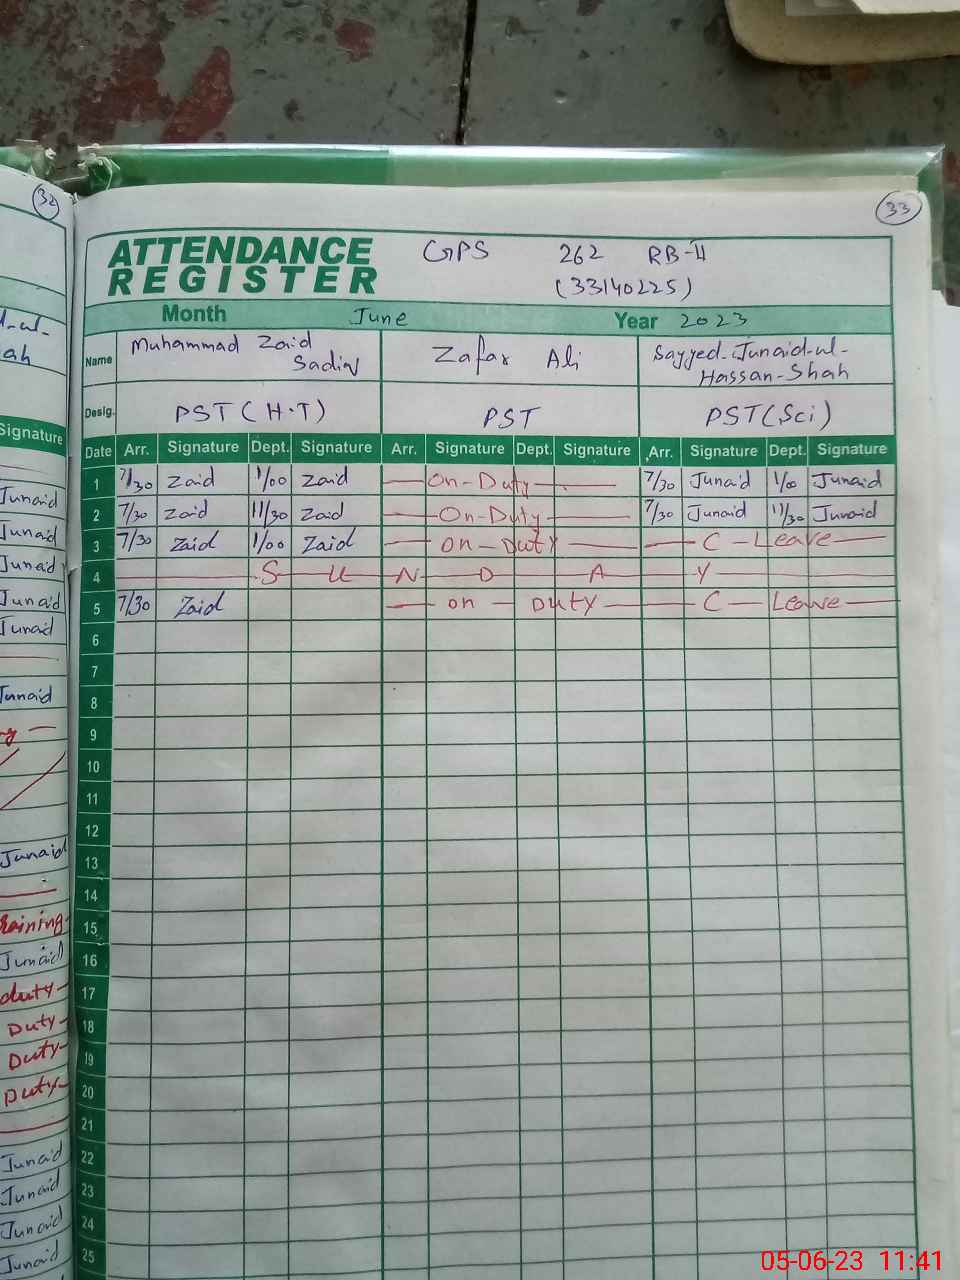 32
33
ATTENDANCE
REGISTER
GPS 262 RB-II
(33140225)
Month June Year 2023
Name Muhammad Zaid Zafar Ali Sayyed-Junaid-ul-
Hassan-Shah
Desig. PST (H.T) PST PST (Sci)
Date Arr. Signature Dept. Signature Arr. Signature Dept. Signature Arr. Signature Dept. Signature
1 7/30 Zaid 1/00 Zaid On-Duty 7/30 Junaid 1/00 Junaid
2 7/30 Zaid 11/30 Zaid On-Duty 7/30 Junaid 11/30 Junaid
3 7/30 Zaid 1/00 Zaid on-Duty C-Leave
4 S U N D A Y
5 7/30 Zaid on Duty C Leave
6
7
8
9
10
11
12
13
14
15
16
17
18
19
20
21
22
23
24
25
ah
Signature
Junaid
Junaid
Junaid
Junaid
Junaid
Junaid
Junaid
Junaid
duty
Duty
Duty
Duty
Junaid
Junaid
Junaid
Junaid
05-06-23 11:41